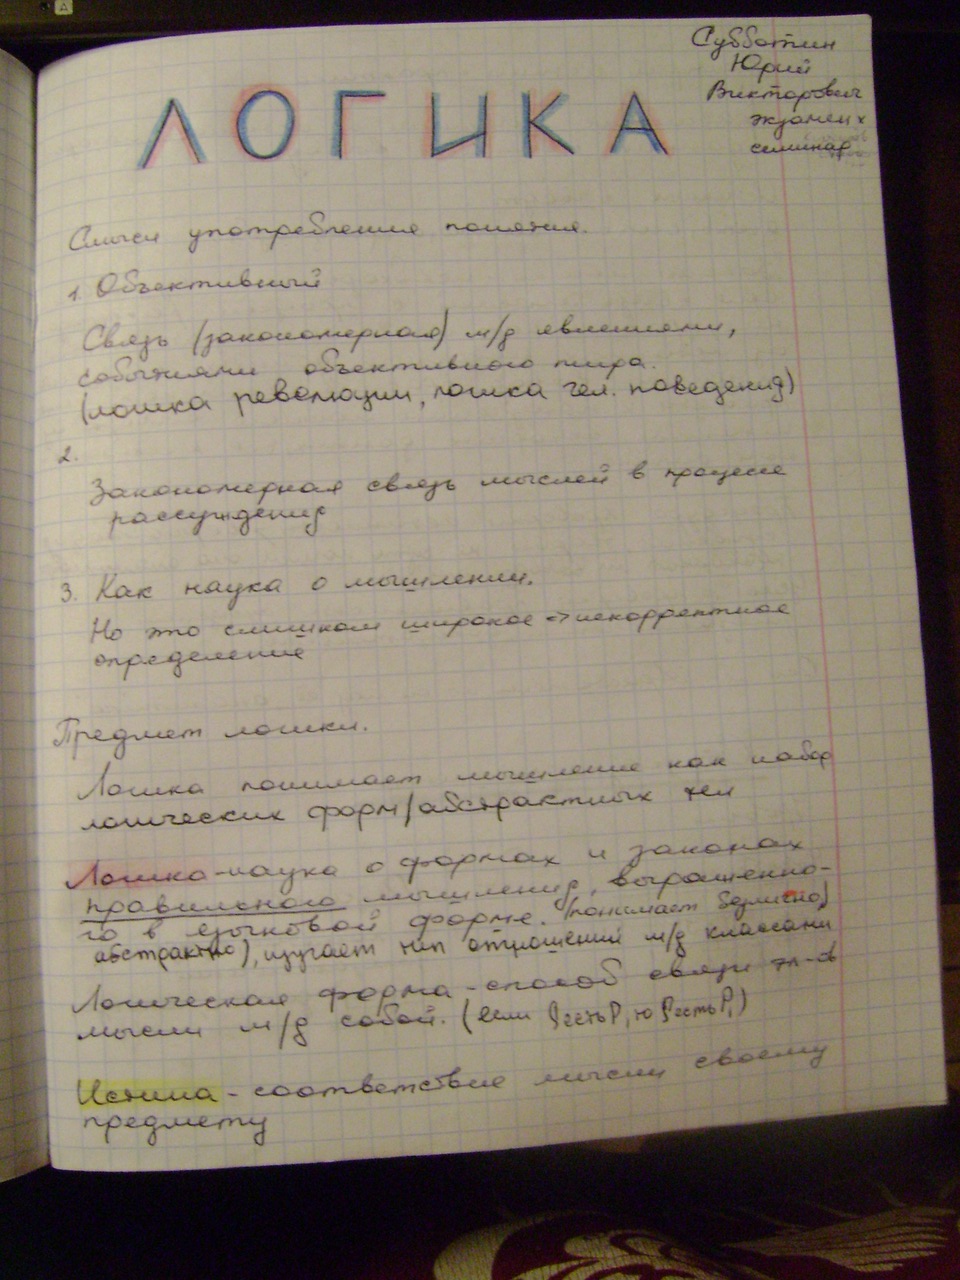 ЛОГИКА
Субботин
Юрий
Викторович
экзамен х
семинар
Смысл употребления понятия.
1. Объективный
Связь (закономерная) м/д явлениями,
событиями объективного мира.
(логика революции, логика чел. поведения)
2.
Закономерная связь мыслей в процессе
рассуждения
3. Как наука о мышлении.
Но это слишком широкое -> некорректное
определение
Предмет логики.
Логика понимает мышление как набор
логических форм/абстрактных тел
Логика - наука о формах и законах
правильного мышления, выраженно-
го в языковой форме. (понимает безлично,
абстрактно), изучает тип отношений м/д классами
Логическая форма - способ связи эл-ов
мысли м/д собой. (если S есть P, то S есть P,)
Истина - соответствие мысли своему
предмету